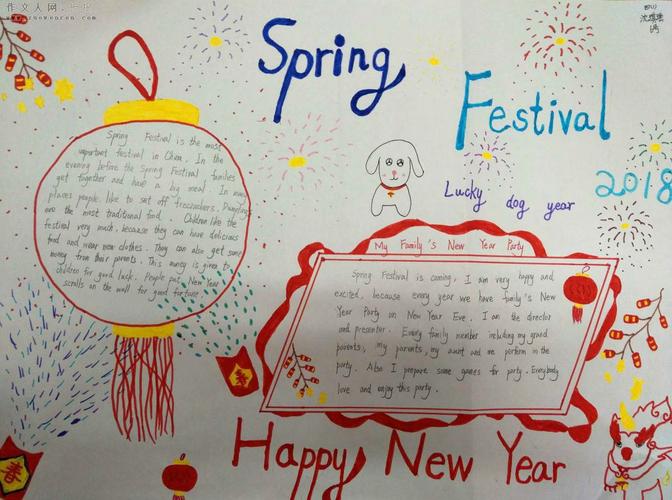 作文人网
Spring
Festival
2018
Lucky dog year
Spring Festival is the most
important festival in China. In the
evening before the Spring Festival, families
get together and have a big meal. In many
places people like to set off firecrackers. Dumplings
are the most traditional food. Children like the
festival very much, because they can have delicious
food and wear new clothes. They can also get some
money from their parents. This money is given to
children for good luck. People put New Year
scrolls on the wall for good fortune.
My Family's New Year Party
Spring Festival is coming, I am very happy and
excited, because every year we have family's New
Year Party on New Year Eve. I am the director
and presenter. Every family member including my grand
parents, my parents, my aunt and me perform in the
party. Also I prepare some games for party. Everybody
love and enjoy this party.
春
春
Happy New Year